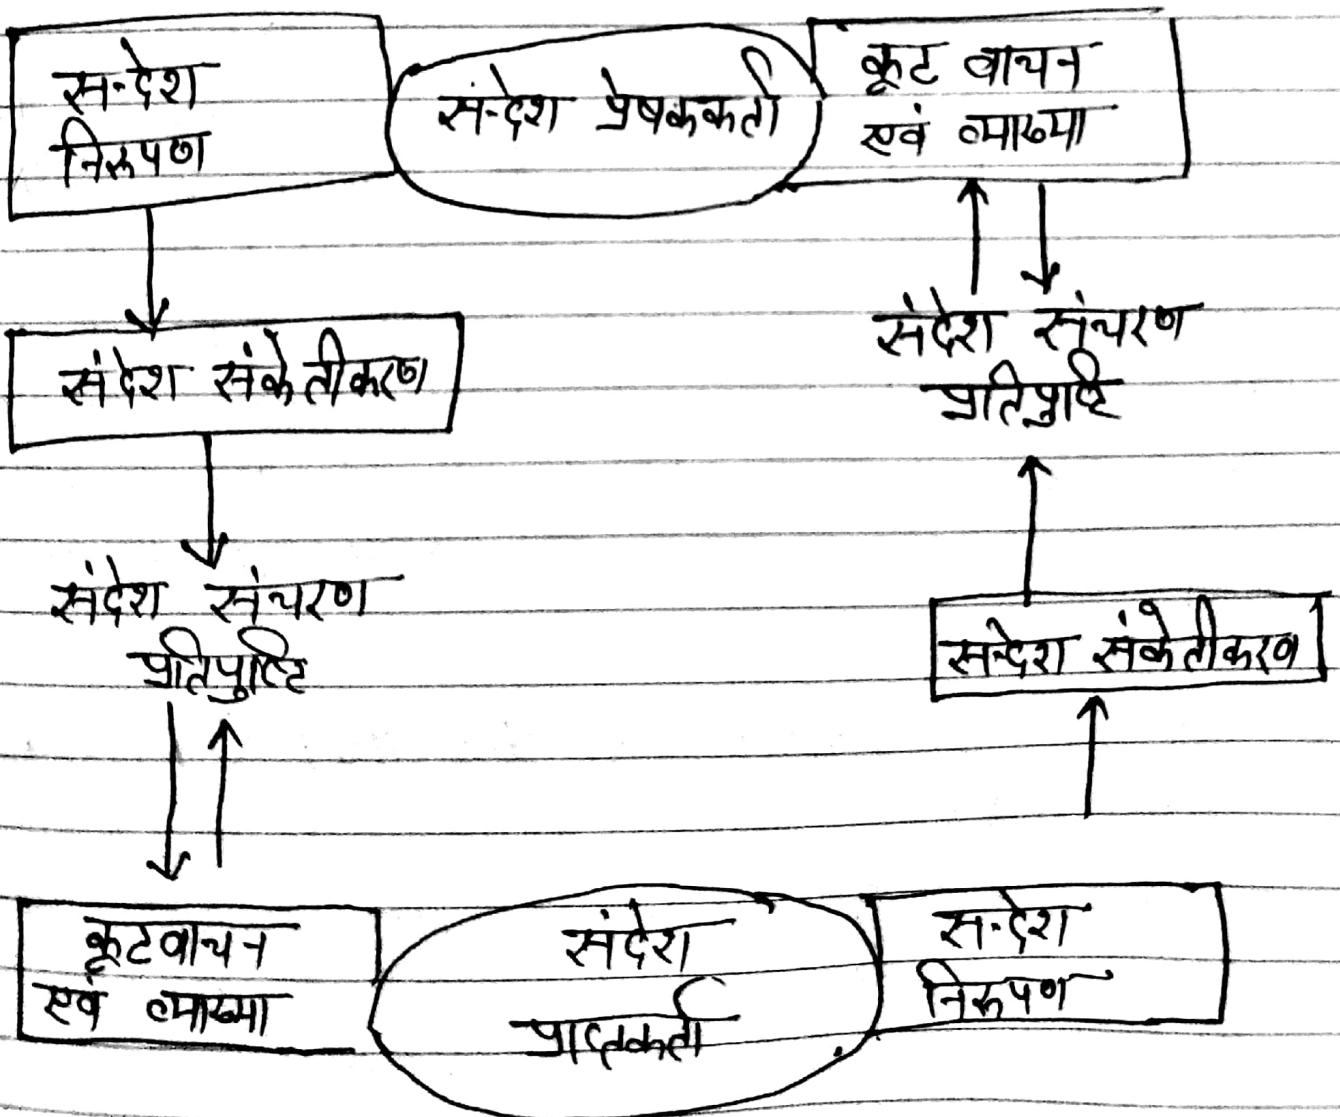 सन्देश
निरूपण
संन्देश प्रेषककर्ता
कूट वाचन
एवं व्याख्या
संदेश संकेतीकरण
संदेश संचरण
प्रतिपुष्टि
संदेश संचरण
प्रतिपुष्टि
सन्देश संकेतीकरण
कूटवाचन
एवं व्याख्या
संदेश
प्राप्तकर्ता
सन्देश
निरूपण